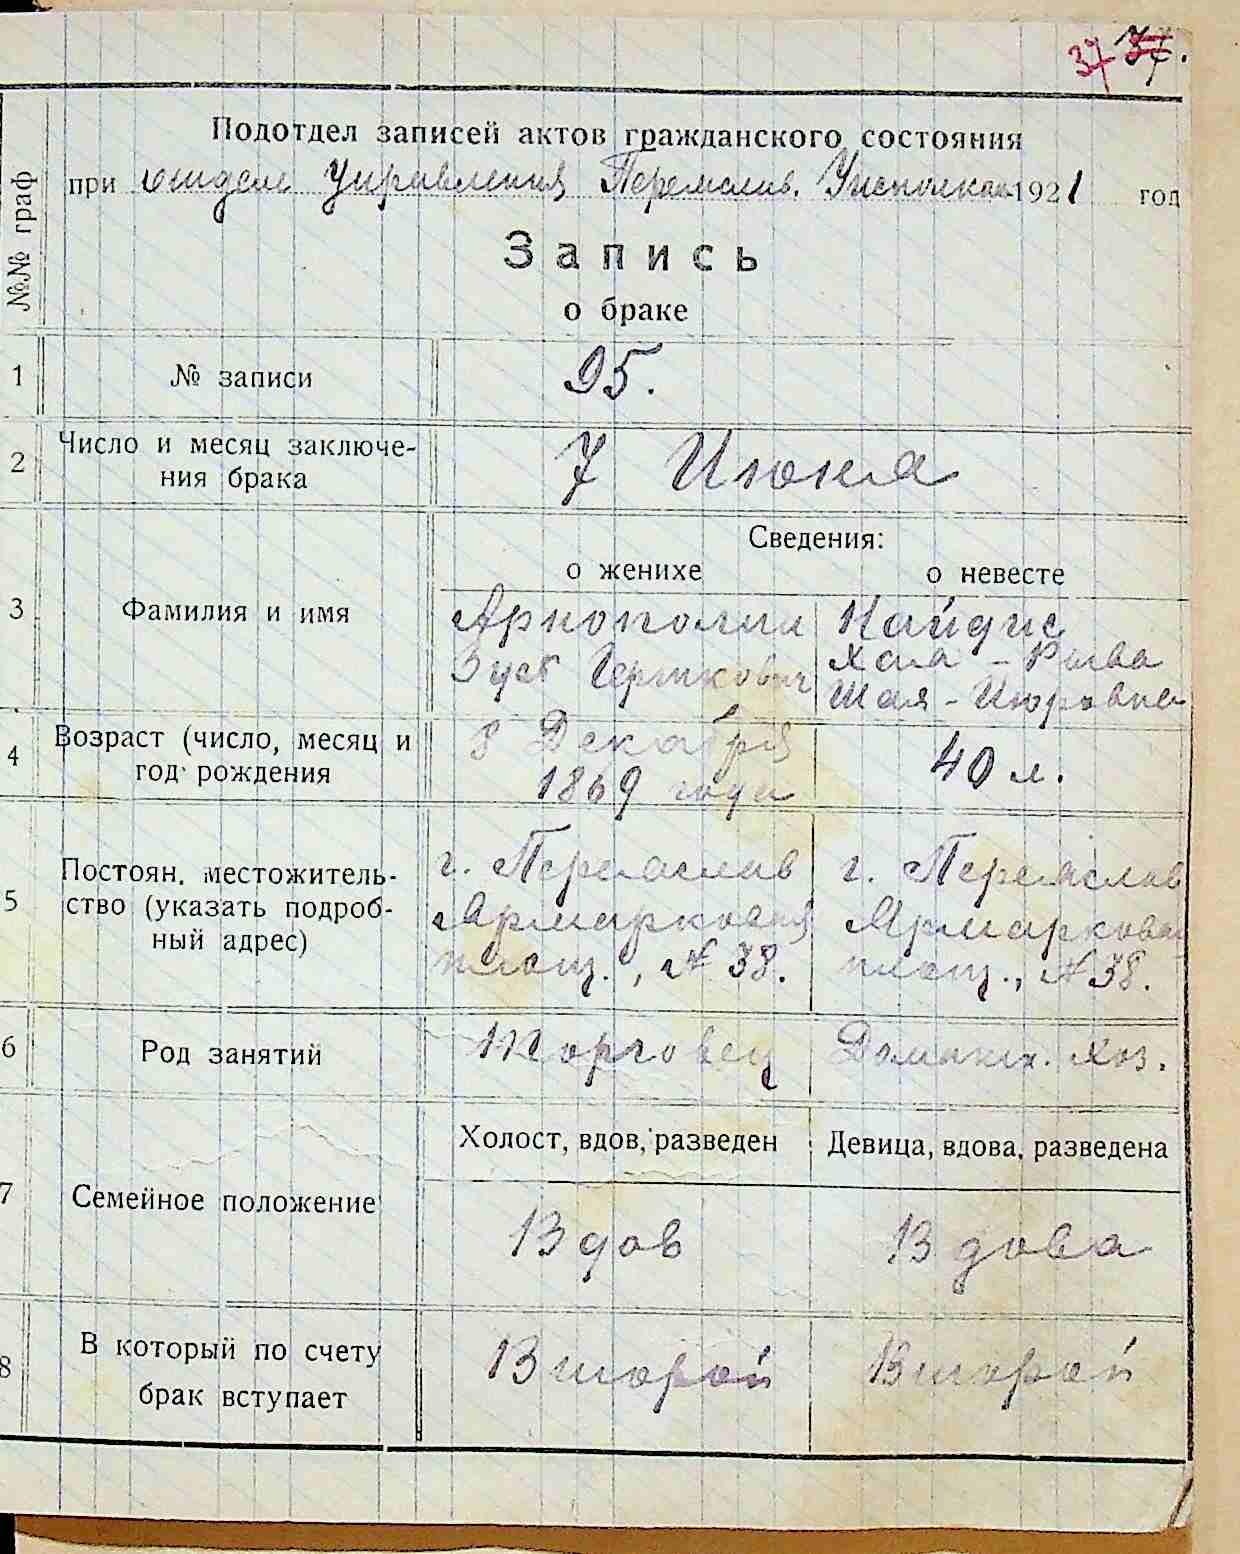 37 37.
Подотдел записей актов гражданского состояния
при отделе Управления Переяслав. Уисполкома 1921 год
№№ граф
Запись
о браке
1 № записи 95.
2 Число и месяц заключе-
ния брака 7 Июня
Сведения:
о женихе о невесте
3 Фамилия и имя
Арнополин Найдис
Зусь Герткович Хая - Рыва
Шая-Июровна
4 Возраст (число, месяц и
год рождения
8 Декабря
1869 года 40 л.
5 Постоян. местожитель-
ство (указать подроб-
ный адрес)
г. Переяслав г. Переяслав
Ярмарковая Ярмарковая
площ., № 38. площ., № 38.
6 Род занятий Торговец Домашн. хоз.
Холост, вдов, разведен Девица, вдова, разведена
7 Семейное положение Вдов Вдова
8 В который по счету
брак вступает Второй Второй